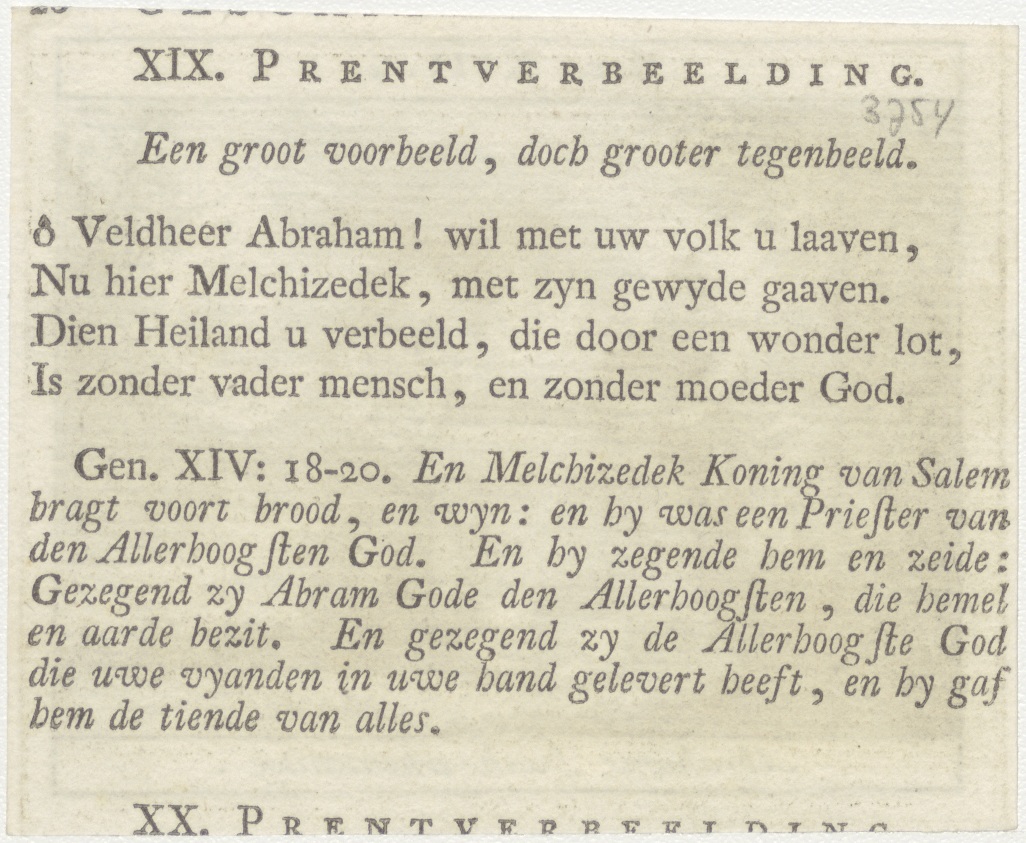 XIX. PRENTVERBEELDING.
3754
Een groot voorbeeld, doch grooter tegenbeeld.
ô Veldheer Abraham! wil met uw volk u laaven,
Nu hier Melchizedek, met zyn gewyde gaaven.
Dien Heiland u verbeeld, die door een wonder lot,
Is zonder vader mensch, en zonder moeder God.
Gen. XIV: 18-20. En Melchizedek Koning van Salem
bragt voort brood, en wyn: en hy was een Prieſter van
den Allerhoogſten God. En hy zegende hem en zeide:
Gezegend zy Abram Gode den Allerhoogſten, die hemel
en aarde bezit. En gezegend zy de Allerhoogſte God
die uwe vyanden in uwe hand gelevert heeft, en hy gaf
hem de tiende van alles.
XX. PRENTVERBEELDING